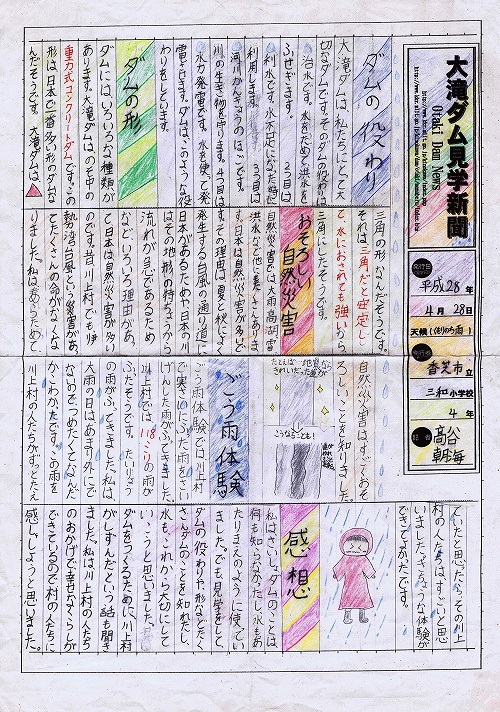 大滝ダム見学新聞
Otaki Dam News
発行日
平成28年
4月28日
天候(くもりのち雨)
香芝市立
三和小学校
4年
記者
高谷
ダムの役わり
大滝ダムは、私たちにとって大
切なダムです。そのダムの役わりは、
治水です。水をためて洪水を
ふせぎます。2つ目は、
利水です。水不足になった時に
利用します。3つ目は、
川の生き物を守ります。4つ目は、
水力発電です。水を使って発
電をします。ダムはこのような役
わりをしています。
ダムの形
ダムには、いろいろな種類が
あります。大滝ダムは、その中の
重力式コンクリートダムです。この
形は、日本で一番多い形のダムな
んだそうです。大滝ダムは、
三角の形なんだそうです。
それは、三角だと安定し
て、水におされても強いから、
三角にしたそうです。
おそろしい自然災害
自然災害では、大雨、高潮、雪、
洪水など他に悪くさんあります
す。その理由は、夏と秋によく
発生する台風の通り道に
日本があるため、日本の川
はその地形の特ちょうから
流れが急であるため
などいろいろ理由があっ
て日本は自然災害が多い
のです。昔、川上村でも伊
勢湾台風という災害があっ
てたくさんの命がなくな
りました。私は、あらためて
自然災害は、すごくおそ
ろしいことを知りました。
たとえば…地震なら
きれいだった道が
こうなることも!
ごう雨体験
ごう雨体験では、川上村
で実さいにふった雨をさい
げんした雨がふってきました。
川上村では、118ミリの雨が
ふったそうです。たいりょう
の雨がふってきました。私は、
大雨の日は、あまり外にで
ないのでつめたくてなんだか
こわかったです。この雨を
川上村の人たちがずっとたえ
ていたと思ったら、その川上
村の人たちはすごいと思
いました。きちょうな体験が
できてよかったです。
感想
私は、さいしょダムのことは、
何も知らなかったし、水もあ
たりまえのように使ってい
ました。でも、見学をして、
ダムの役わりや形などたく
さんダムのことを知れたし、
水もこれから大切にして
いこうと思いました。
ダムをつくるために、川上村
がしずんだという話も聞き
ました。私は、川上村の人たち
のおかげで幸せなくらしが
できているので村の人たちに
感しゃしようと思いました。